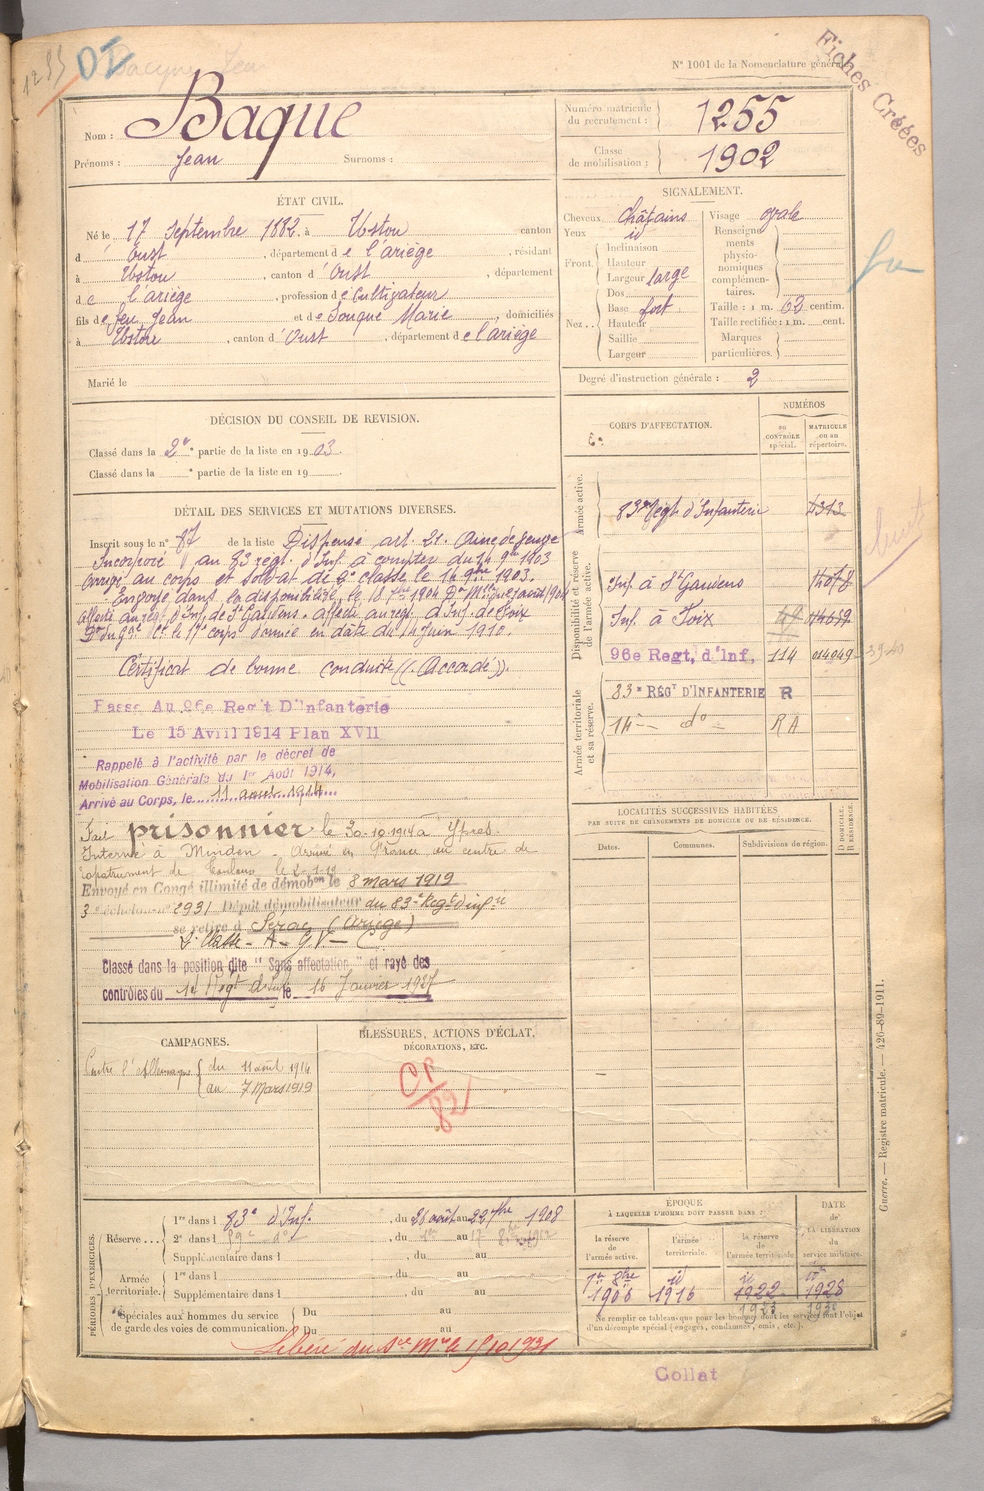 1255
N° 1001 de la Nomenclature générale
Fiches Créées
Nom : Baque
Prénoms : Jean Surnoms :
Numéro matricule du recrutement : 1255
Classe de mobilisation : 1902
ÉTAT CIVIL.
Né le 17 Septembre 1882 à Ustou canton
d Oust, département de l'ariège, résidant
à Ustou, canton d'Oust, département
de l'ariège, profession de Cultivateur
fils de feu Jean et de Souque Marie, domiciliés
à Ustou, canton d'Oust, département de l'ariège
Marié le
SIGNALEMENT.
Cheveux châtains
Yeux id
Front. Inclinaison
Hauteur
Largeur large
Nez. Dos
Base fort
Hauteur
Saillie
Largeur
Visage ovale
Renseignements physionomiques complémentaires.
Taille : 1 m. 63 centim.
Taille rectifiée : 1 m. cent.
Marques particulières.
Degré d'instruction générale : 2
DÉCISION DU CONSEIL DE REVISION.
Classé dans la 2e partie de la liste en 1903.
Classé dans la e partie de la liste en 19
DÉTAIL DES SERVICES ET MUTATIONS DIVERSES.
Inscrit sous le n° 87 de la liste Dispensé art. 21.
Incorporé au 83 régt. d'Inf. à compter du 14 9bre 1903
arrivé au corps et soldat de 2e classe le 14 9bre 1903.
Envoyé dans la disponibilité, le 18 1904
affecté au rég. d'Inf. de St Gaudens. affecté au rég. d'Inf. de Foix
corps d'armée en date du 14 juin 1910.
Certificat de bonne conduite ((Accordé)).
Passé Au 96e Reg't D'Infanterie
Le 15 Avril 1914 Plan XVII
Rappelé à l'activité par le décret de
Mobilisation Générale du 1er Août 1914,
Arrivé au Corps, le 11 août 1914
Fait prisonnier le 30-10-1914 à Ypres.
Interné à Minden. Arrivé en France au centre de
rapatriement de Toulouse le
Envoyé en Congé illimité de démobon le 8 mars 1919
3e échelon n° 2931 Dépôt démobilisateur du 83e Regt d'infie
se retire à Sérac (Ariège)
Classé dans la position dite "Sans affectation" et rayé des
contrôles du 14 Régt d'Inf le 16 Janvier 1927
CORPS D'AFFECTATION.
NUMÉROS
au CONTRÔLE spécial.
MATRICULE ou au répertoire.
Armée active.
83me Régt d'Infanterie 4313
Disponibilité et réserve de l'armée active.
Inf. à St Gaudens
Inf. à Foix
96e Regt, d'Inf, 114 014049
39-40
Armée territoriale et sa réserve.
83e RÉGT D'INFANTERIE R
14 — do — RA
LOCALITÉS SUCCESSIVES HABITÉES
PAR SUITE DE CHANGEMENTS DE DOMICILE OU DE RÉSIDENCE.
Dates. Communes. Subdivisions de région. D DOMICILE. R RÉSIDENCE.
CAMPAGNES.
Contre l'Allemagne du 11 août 1914
au 7 Mars 1919
BLESSURES, ACTIONS D'ÉCLAT,
DÉCORATIONS, ETC.
PÉRIODES D'EXERCICES.
Réserve... 1re dans l 83e d'Inf., du 26 août au 22 7bre 1908
2e dans l, du au
Supplémentaire dans l, du au
Armée territoriale. 1re dans l, du au
Supplémentaire dans l, du au
Spéciales aux hommes du service de garde des voies de communication. Du au
Du au
ÉPOQUE
À LAQUELLE L'HOMME DOIT PASSER DANS :
la réserve de l'armée active.
l'armée territoriale.
la réserve de l'armée territoriale.
DATE de LA LIBÉRATION du service militaire.
1er 8bre 1906 id 1916 id 1922 1928
Ne remplir ce tableau que pour les hommes dont les services font l'objet d'un décompte spécial (engagés, condamnés, omis, etc.).
Libéré du Sce Mre le 15/10/1931
Collat
Guerre. — Registre matricule. — 426-89-1911.